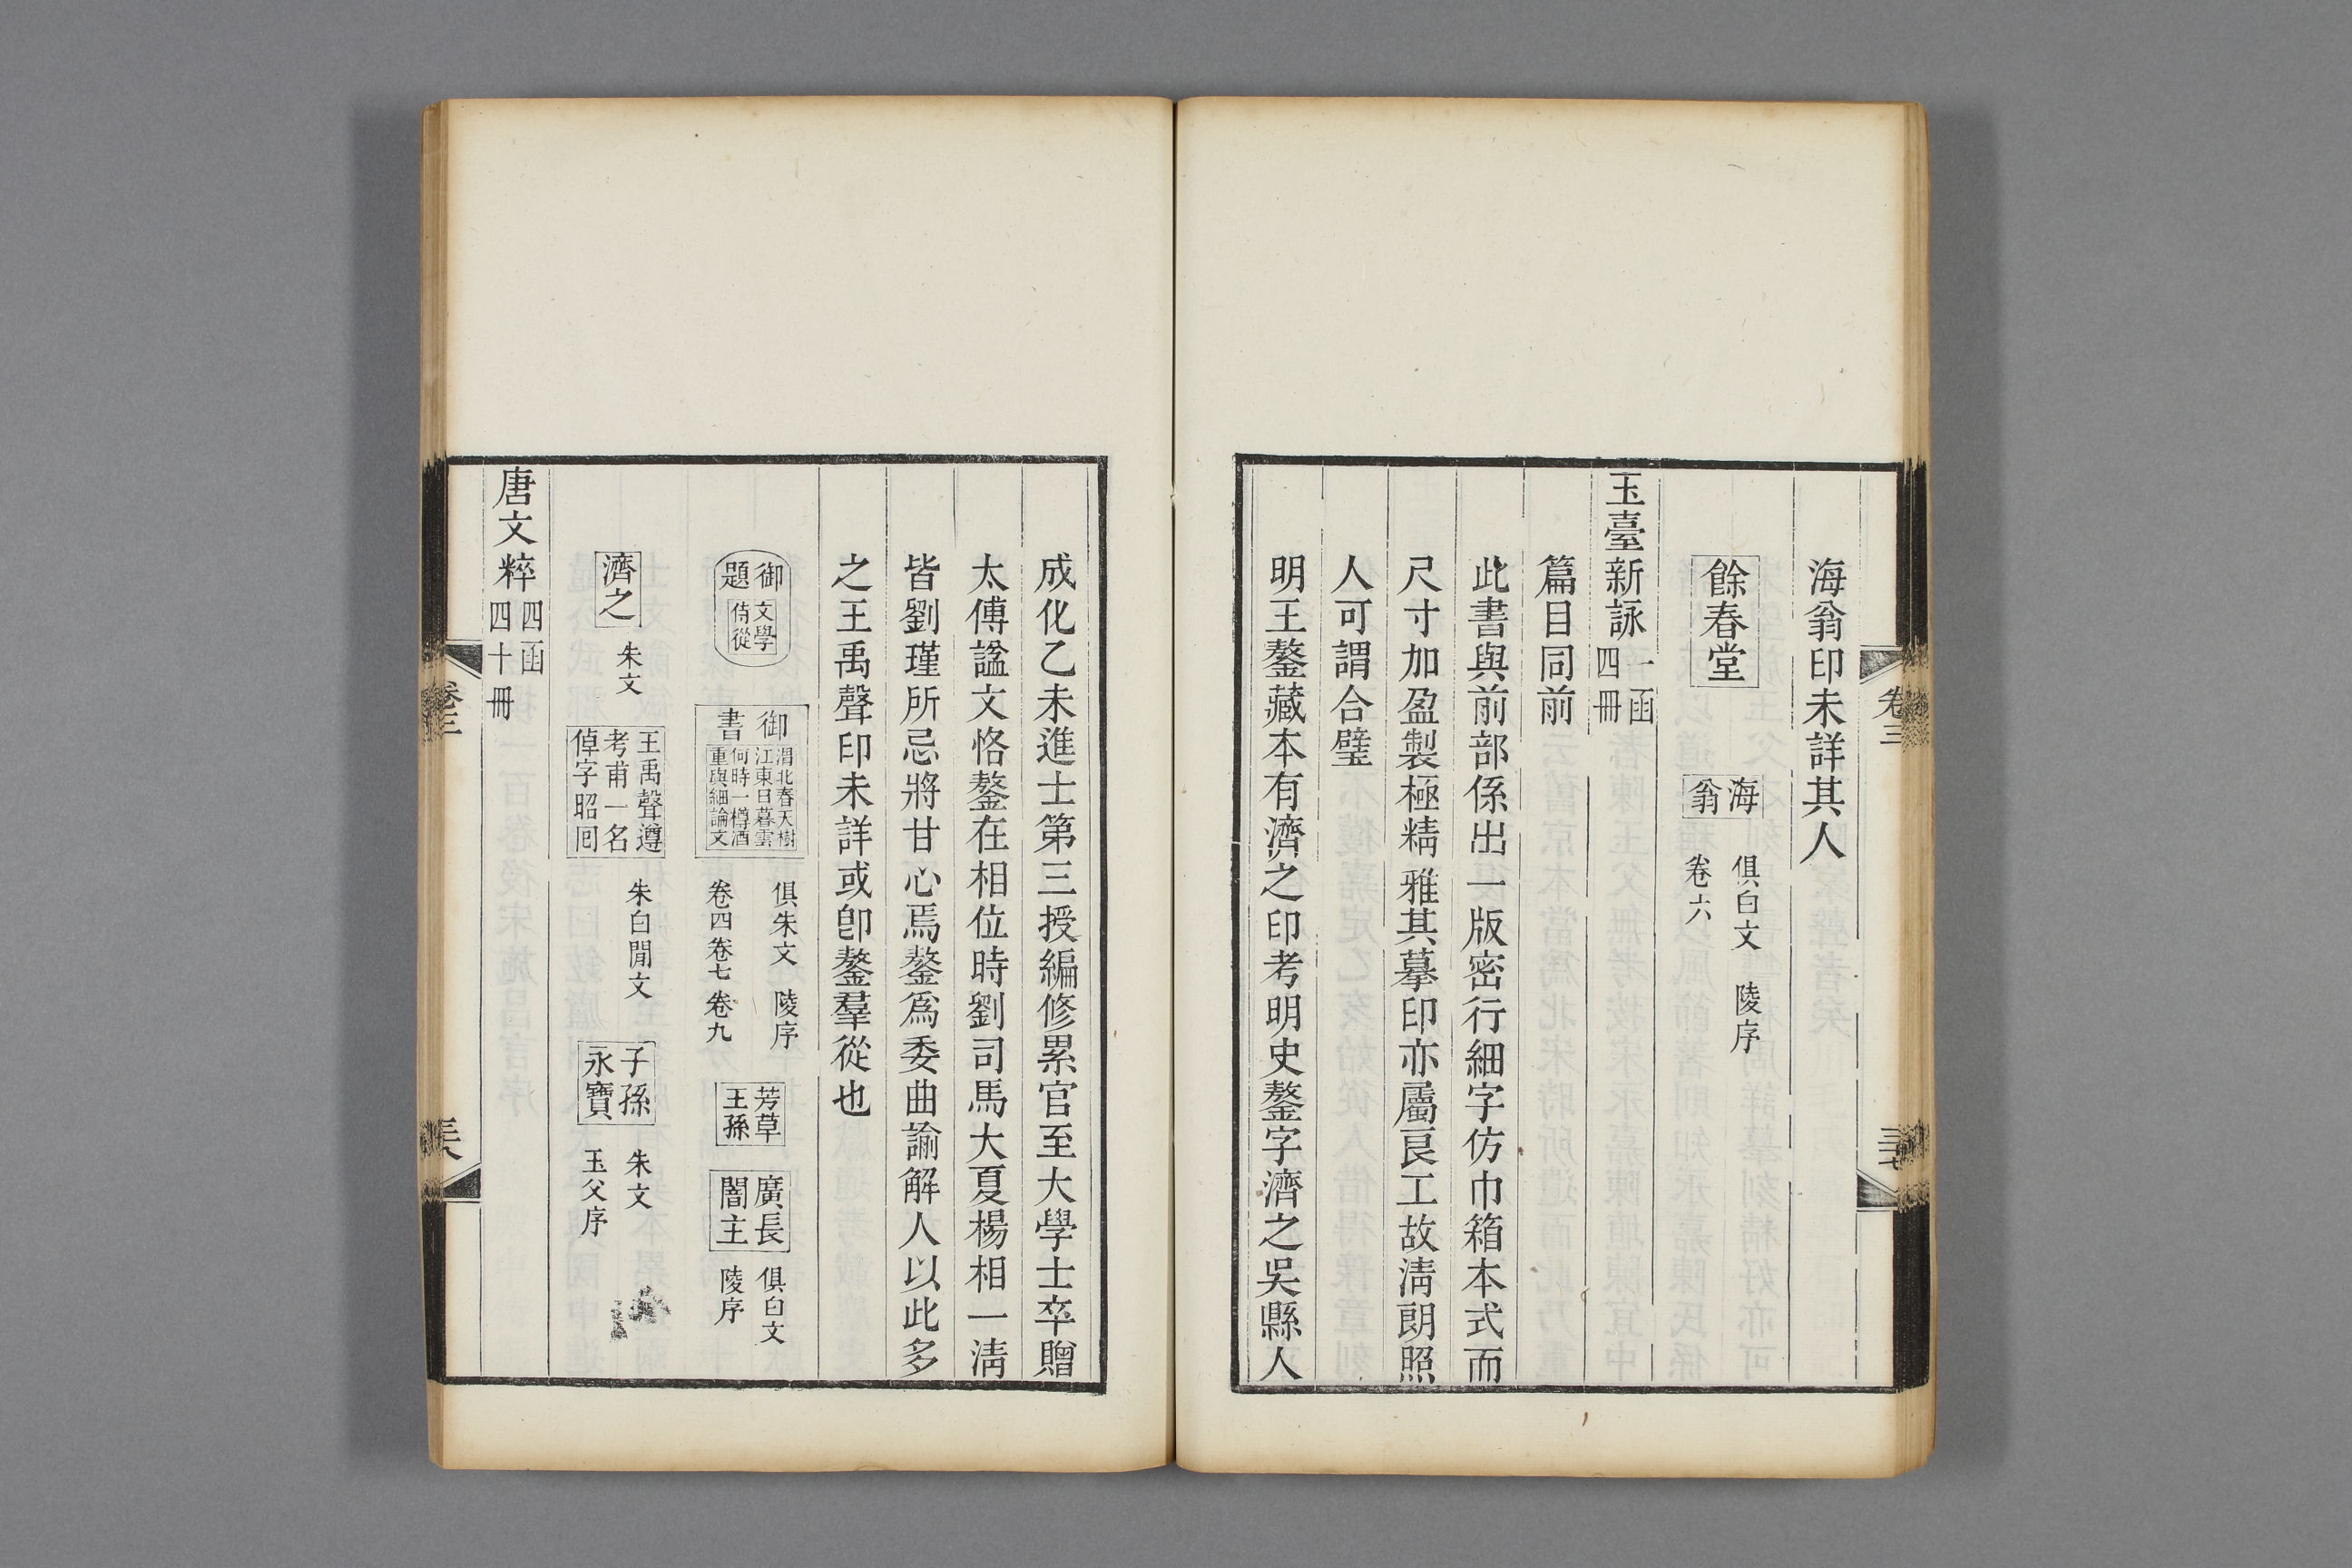 海翁印未詳其人
餘春堂
海翁
俱白文　陵序
卷六
玉臺新詠
一函
四冊
篇目同前
此書與前部係出一版密行細字仿巾箱本式而
尺寸加盈製極精雅其摹印亦屬良工故清朗照
人可謂合璧
明王鏊藏本有濟之印考明史鏊字濟之吳縣人
卷三
三十七
成化乙未進士第三授編修累官至大學士卒贈
太傅諡文恪鏊在相位時劉司馬大夏楊相一清
皆劉瑾所忌將甘心焉鏊為委曲諭解人以此多
之王禹聲印未詳或卽鏊羣從也
御題
文學侍從
御書
渭北春天樹
江東日暮雲
何時一樽酒
重與細論文
俱朱文　陵序
卷四卷七卷九
芳草王孫
廣長闇主
俱白文
陵序
濟之
朱文
王禹聲遵
考甫一名
倬字昭回
朱白間文
子孫永寶
朱文
玉父序
唐文粹
四函
四十冊
卷三